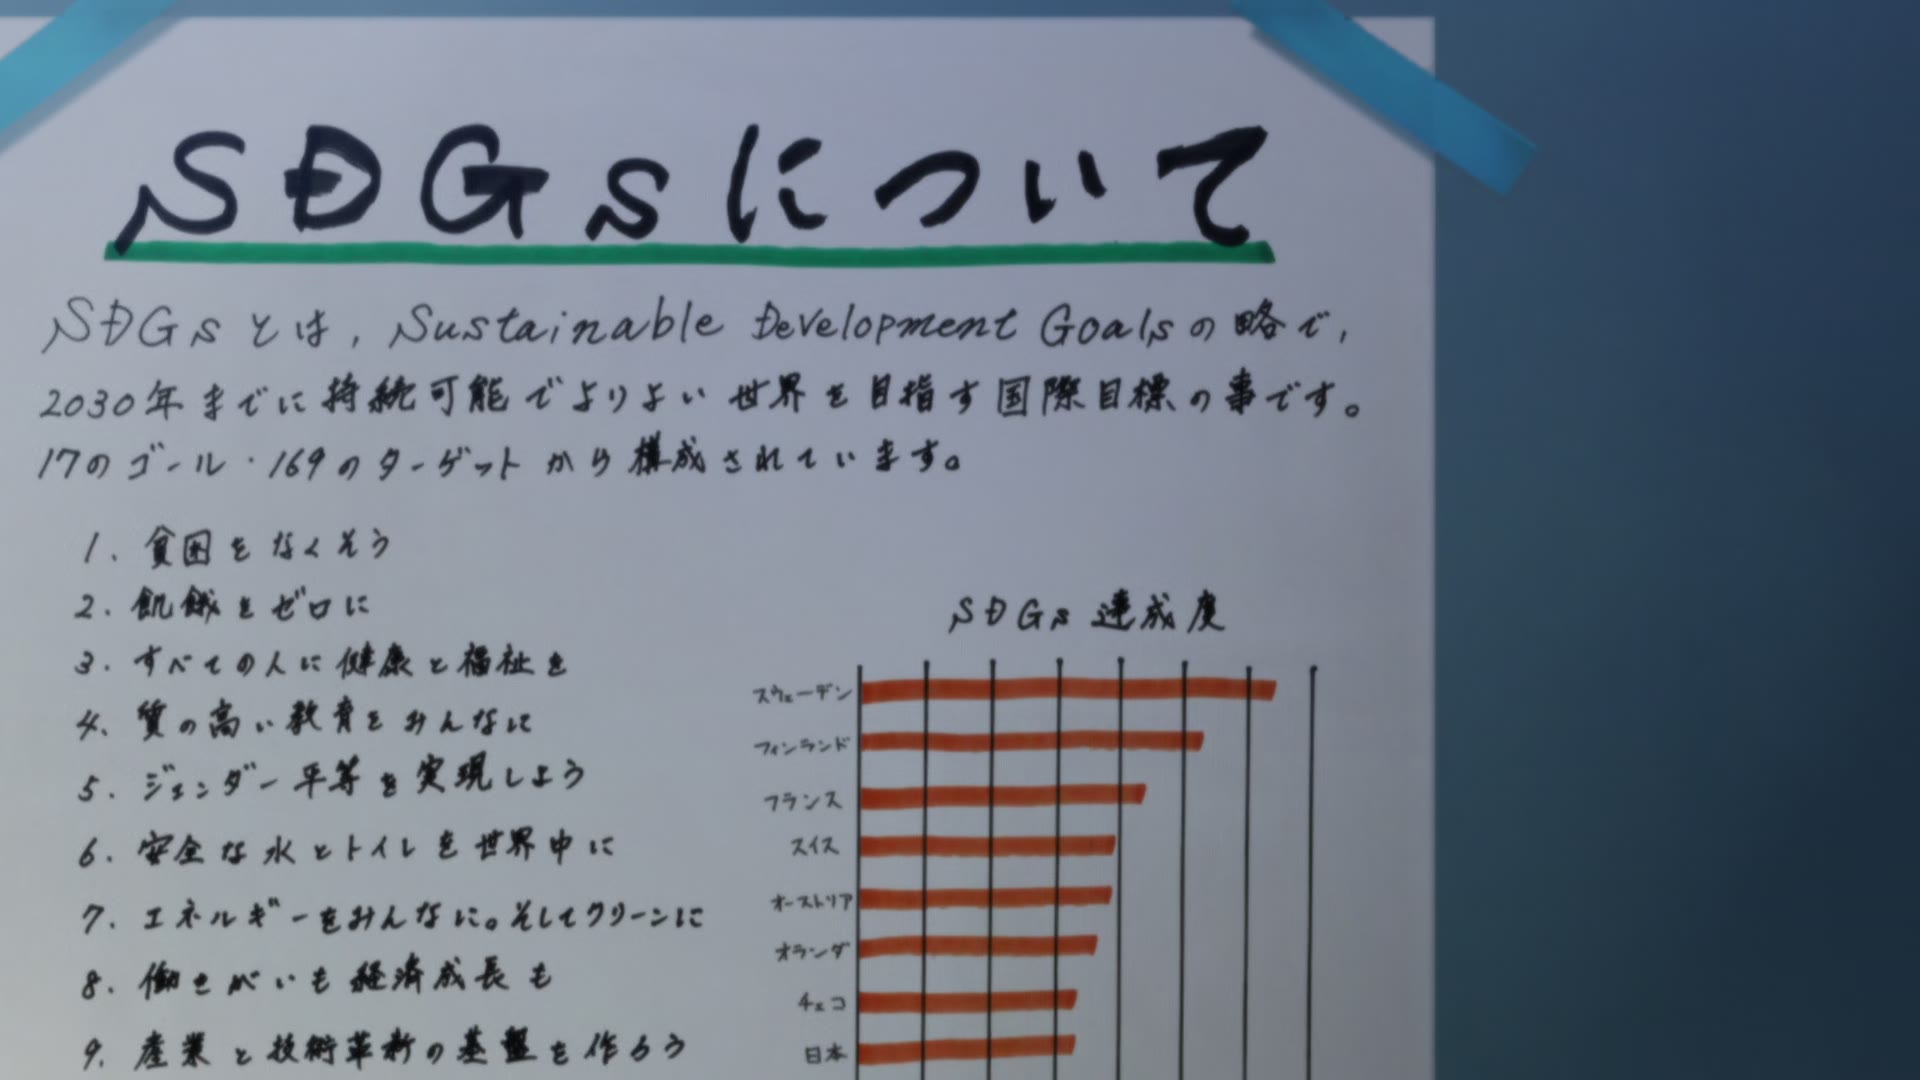 SDGsについて
SDGsとは, Sustainable Development Goalsの略で,
2030年までに持続可能でよりよい世界を目指す国際目標の事です。
17のゴール・169のターゲットから構成されています。
1. 貧困をなくそう
2. 飢餓をゼロに
3. すべての人に健康と福祉を
4. 質の高い教育をみんなに
5. ジェンダー平等を実現しよう
6. 安全な水とトイレを世界中に
7. エネルギーをみんなに。そしてクリーンに
8. 働きがいも経済成長も
9. 産業と技術革新の基盤を作ろう
SDGs達成度
スウェーデン
フィンランド
フランス
スイス
オーストリア
オランダ
チェコ
日本